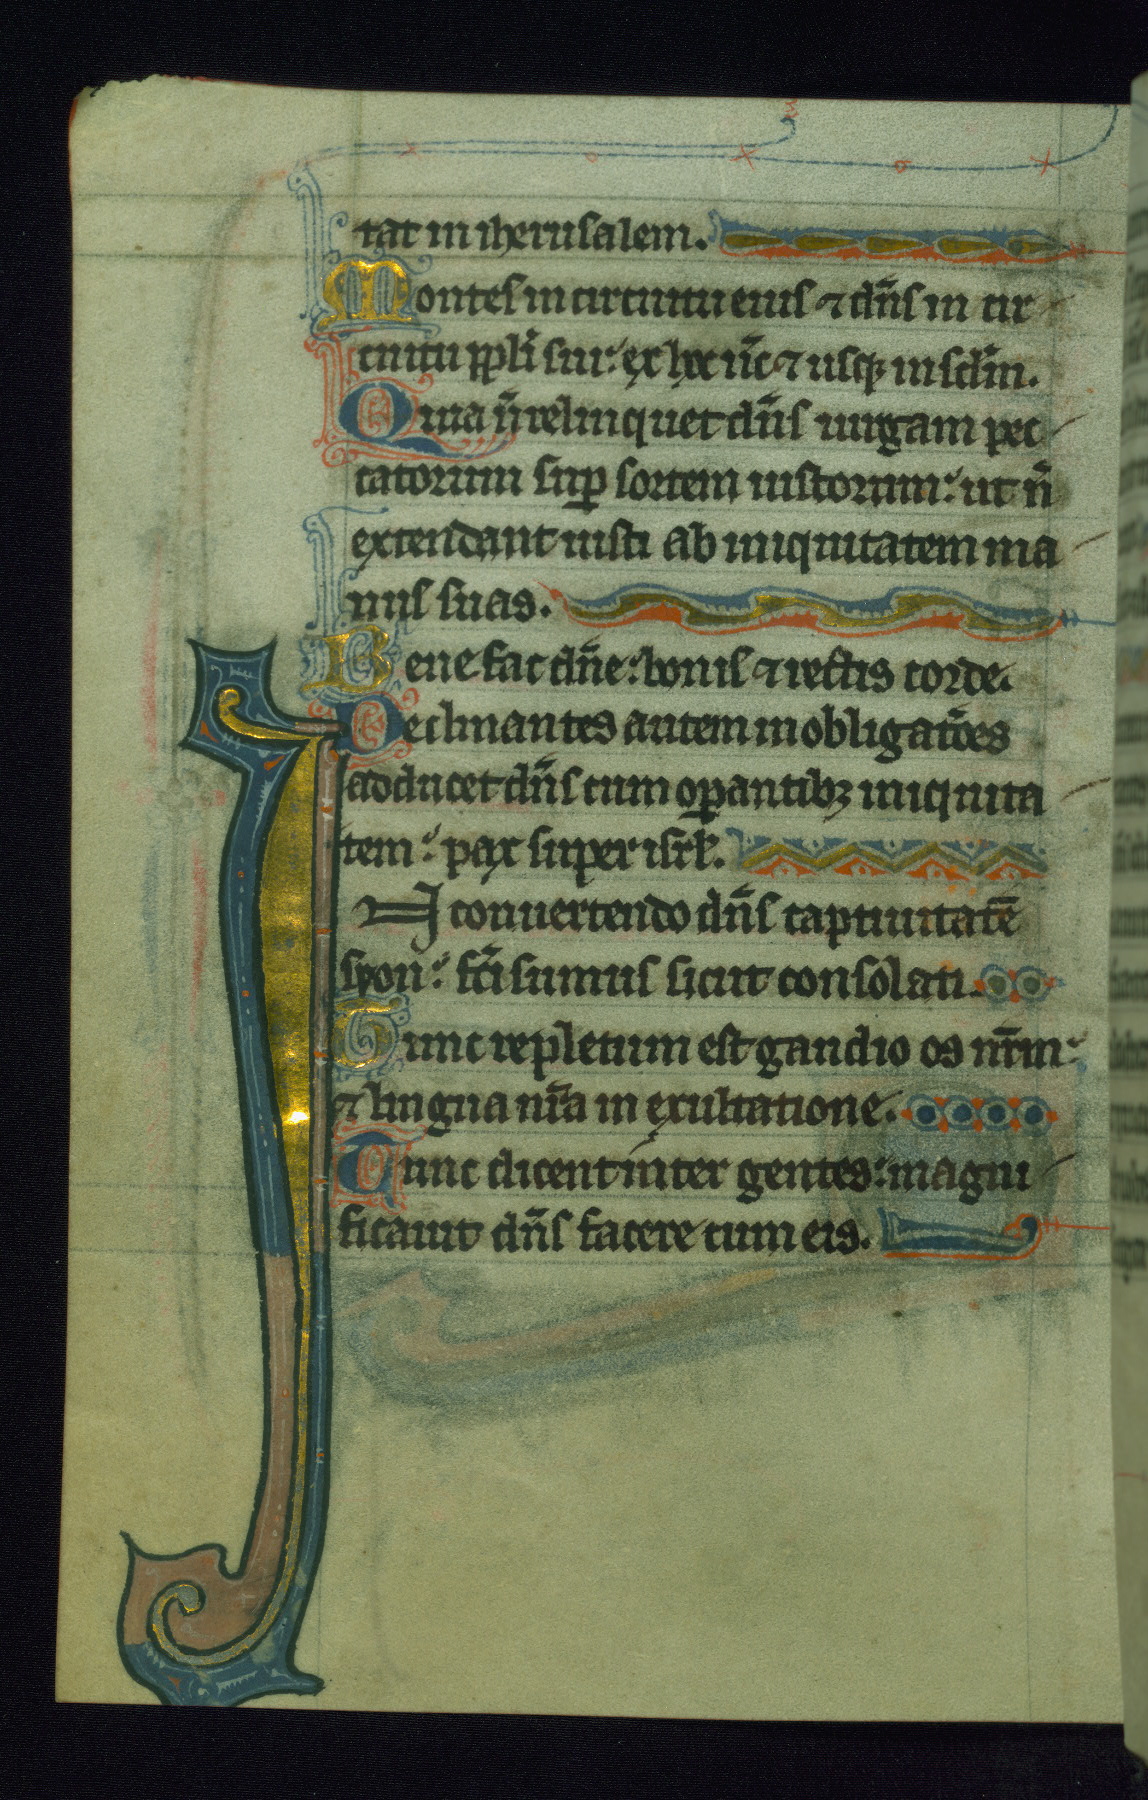 tat in iherusalem.
Montes in circuitu eius ⁊ dn̄s in cir
cuitu ppl̄i sui: ex hoc nc̄ ⁊ usqꝫ in sclm̄.
Quia n̄ relinquet dn̄s uirgam pec
catorum suꝑ sortem iustorum: ut n̄
extendant iusti ab iniquitatem ma
nus suas.
Bene fac dn̄e: bonis ⁊ rectis corde.
Declinantes autem in obligatōes
adducet dn̄s cum oꝑantibꝫ iniquita
tem: pax super isrl̄.
IN conuertendo dn̄s captiuitatē
syon: fc̄i sumus sicut consolati.
Tunc repletum est gaudio os nr̄m:
⁊ lingua nr̄a in exultatione.
Tunc dicent inter gentes: magni
ficauit dn̄s facere cum eis.